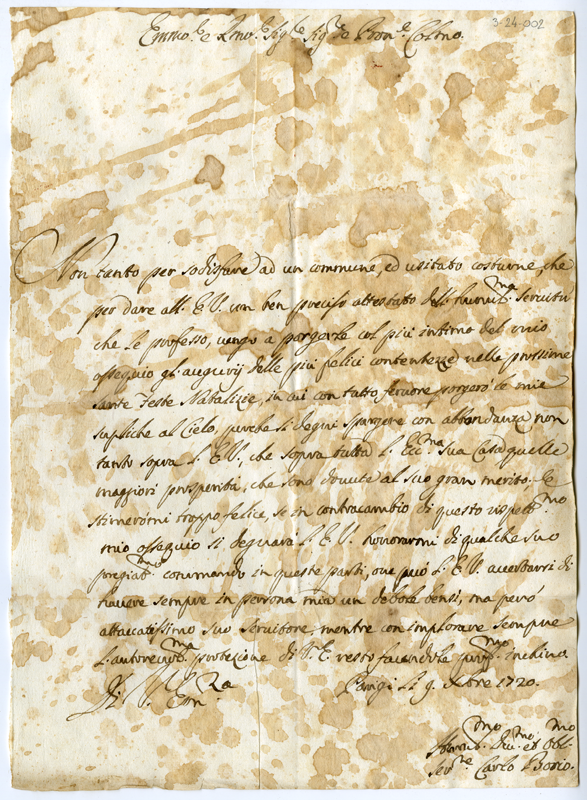 3-24-002
Em.mo e Rev.mo Sig.re Sig.re Pron.e Col.mo
Non tanto per sodisfare ad un commune, ed usitato costume, che
per dare all. E. V. un ben preciso attestato dell. humil.ma servitù
che le professo, vengo a porgerle col più intimo del mio
ossequio gl. augurij delle più felici contentezze nelle prossime
sante Feste Natalizie, in cui con tutto fervore porgerò le mie
supliche al Cielo, purche si degni spargere con abbondanza non
tanto sopra l. E. V., che sopra tutta l. Ecc.ma sua Casa quelle
maggiori prosperità, che sono dovute al suo gran merito. E
stimerommi troppo felice, se in contracambio di questo rispett.mo
mio ossequio si degnarà l. E. V. honorarmi di qualche suo
pregiat.mo commando in queste parti, ove può l. E. V. accertarsi di
havere sempre in persona mia un debole bensì, ma però
attaccatissimo suo servitore, mentre con implorare sempre
l. autorevol.ma protezione di V. E. resto facendole prof.mo inchino.
Di V. Em.za
Parigi li 9. Xbre 1720.
Humil.mo Div.mo et Obl.mo
Ser.re Carlo Borio.